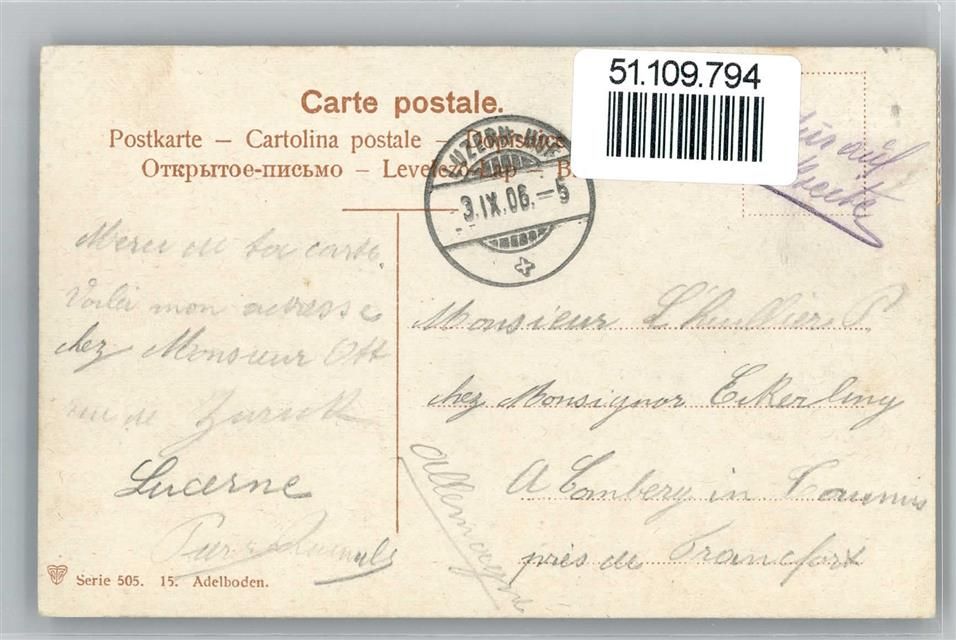 51.109.794
Carte postale.
Postkarte – Cartolina postale – Dopisnice
Открытое-письмо – Levelező-Lap – B
LUZERN
3.IX.06.–5
auf
Merci de ta carte.
Voilà mon adresse
chez Monsieur Ott
rue de Zurich
Lucerne
Monsieur L'huillier P
chez Monsignor Ekerling
A Combery in Taunus
près de Francfort
Allemagne
Serie 505. 15. Adelboden.